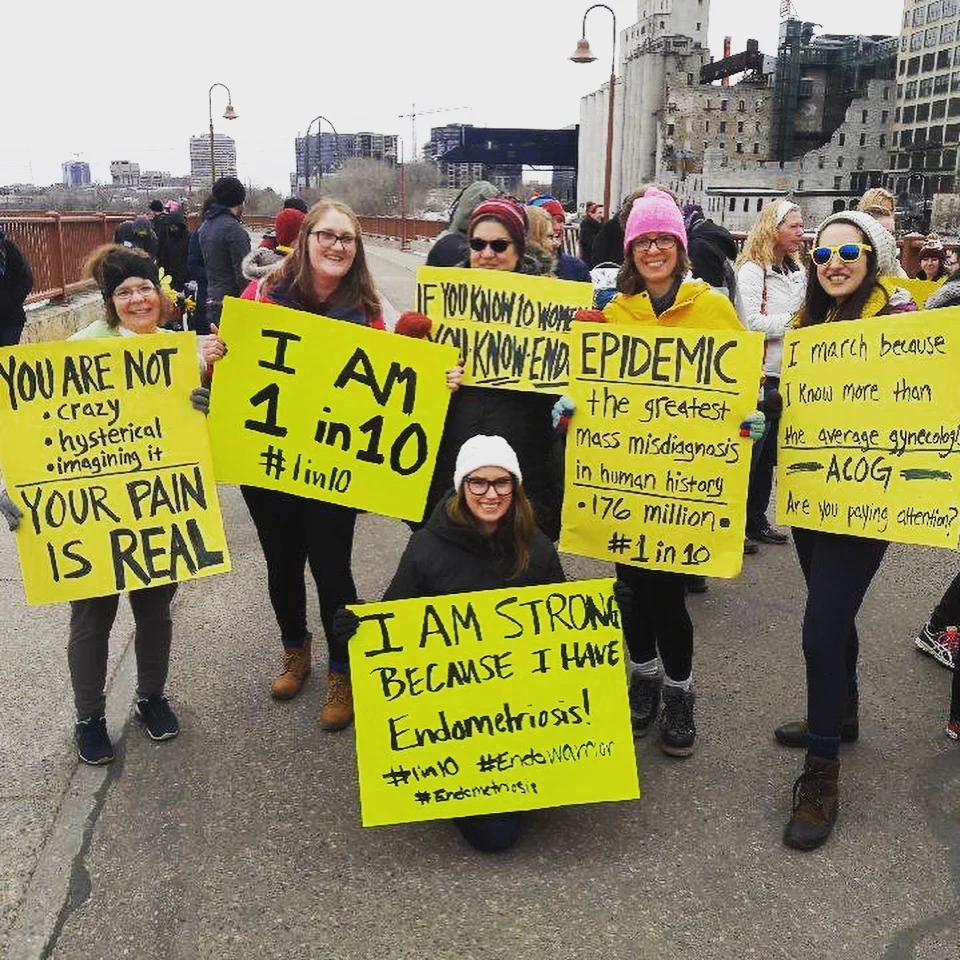 YOU ARE NOT
• crazy
• hysterical
• imagining it
YOUR PAIN
IS REAL
I AM
1 in 10
#1in10
IF YOU KNOW 10 WOME
YOU KNOW END
EPIDEMIC
the greatest
mass misdiagnosis
in human history
• 176 million •
#1 in 10
I march because
I know more than
the average gynecologi
— ACOG —
Are you paying attention?
I AM STRONG
BECAUSE I HAVE
Endometriosis!
#1in10 #EndoWarrior
#Endometriosis